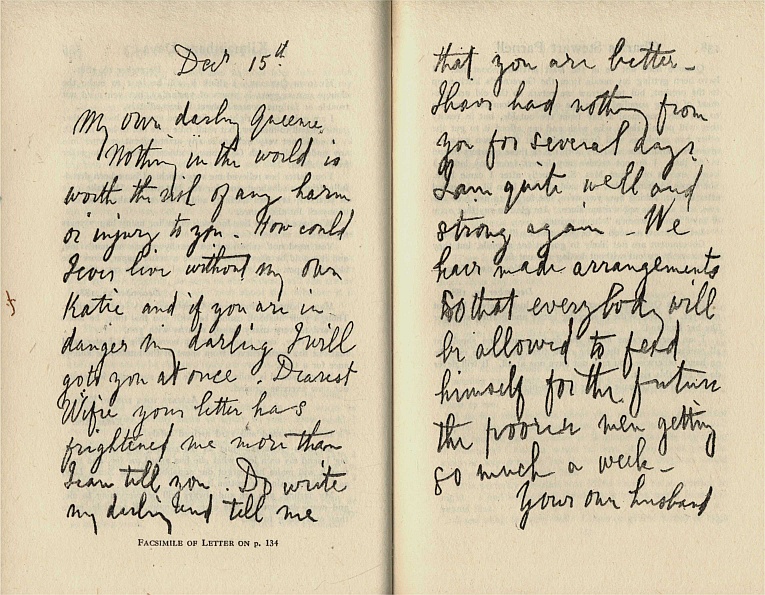 Decr 15th
My own darling Queenie,
Nothing in the world is
worth the risk of any harm
or injury to you. How could
I ever live without my own
Katie and if you are in
danger my darling I will
go to you at once. Dearest
Wifie your letter has
frightened me more than
I can tell you. Do write
my darling and tell me
FACSIMILE OF LETTER ON P. 134
that you are better -
I have had nothing from
you for several days.
I am quite well and
strong again - We
have made arrangements
so that everybody will
be allowed to feed
himself for the future
the poorer men getting
so much a week -
Your own husband